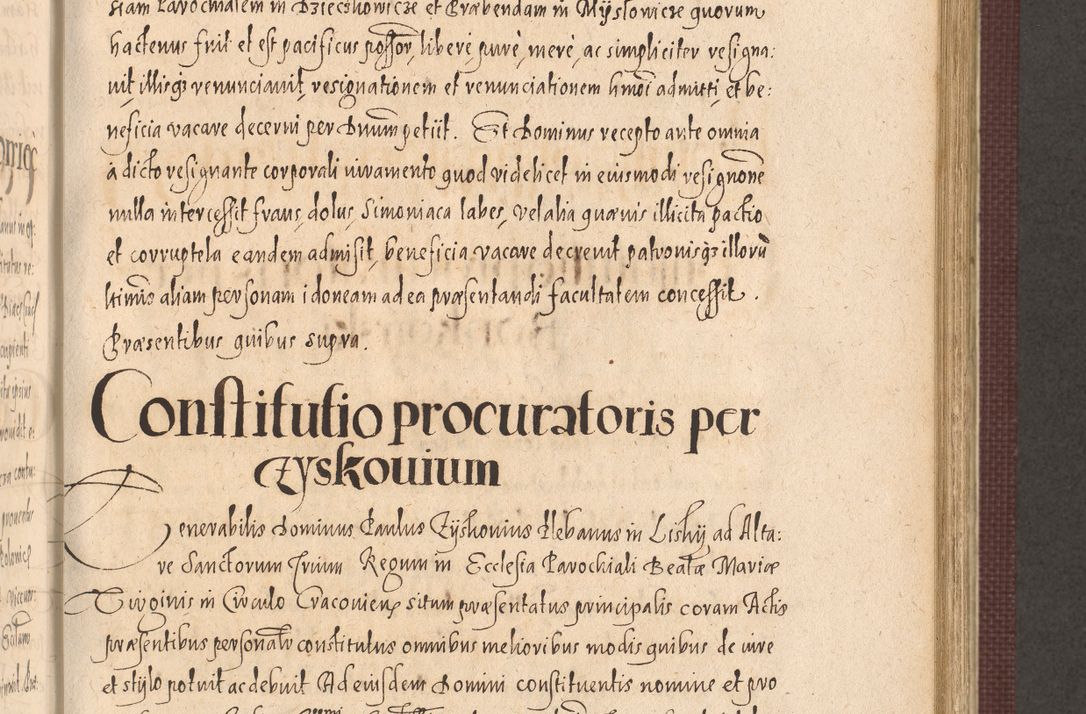 siam Parochialem in Dziećkowicze et Præbendam in Mÿslowicze quorum
hactenus fuit et est pacificus possor, liberè, purè, merè, ac simpliciter resigna:
uit, illisqȝ renunciauit, resignationem et renunciationem hmoi admitti, et be:
neficia vacare decerni per Dnum petiit. Et Dominus recepto ante omnia
à dicto resignante corporali iuramento quod videlicet in eiusmodi resignone
nulla intercessit fraus, dolus, Simoniaca labes, vel alia quævis illicita pactio
et corruptela eandem admisit, beneficia vacare decreuit patronisqȝ illorū
ltimis aliam personam idoneam ad ea præsentandi facultatem concessit.
Præsentibus quibus supra.
Constitutio procuratoris per
Zyskouium
Venerabilis Dominus Paulus Zÿskouius Plebanus in Liskÿ ad Alta:
re Sanctorum Trium Regum in Ecclesia Parochiali Beatæ Mariæ
Virginis in Circulo Cracouien̄ situm præsentatus principalis coram Actis
præsentibus personalr constitutus omnibus melioribus modis quibus de iure
et stÿlo potuit ac debuit Ad eiusdem Domini constituentis nomine et pro